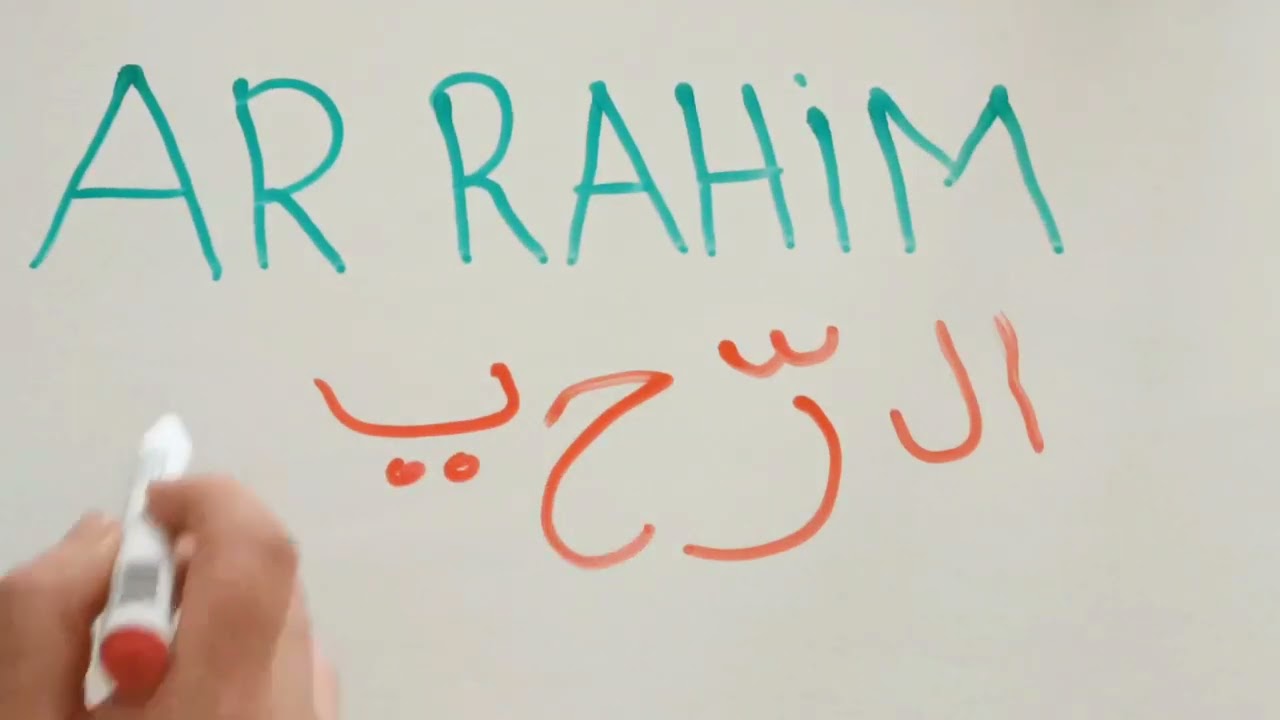 AR RAHiM
ال رّ ح يـ